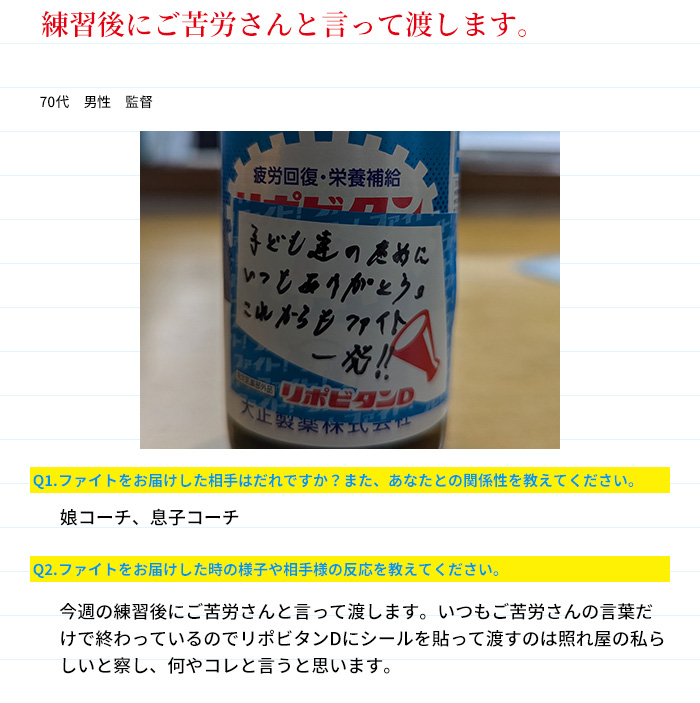 練習後にご苦労さんと言って渡します。
70代　男性　監督
疲労回復・栄養補給
リポビタン
子ども達のために
いつもありがとう。
これからもファイト
一発!!
ファイト!
リポビタンD
大正製薬株式会社
Q1.ファイトをお届けした相手はだれですか？また、あなたとの関係性を教えてください。
娘コーチ、息子コーチ
Q2.ファイトをお届けした時の様子や相手様の反応を教えてください。
今週の練習後にご苦労さんと言って渡します。いつもご苦労さんの言葉だ
けで終わっているのでリポビタンDにシールを貼って渡すのは照れ屋の私ら
しいと察し、何やコレと言うと思います。